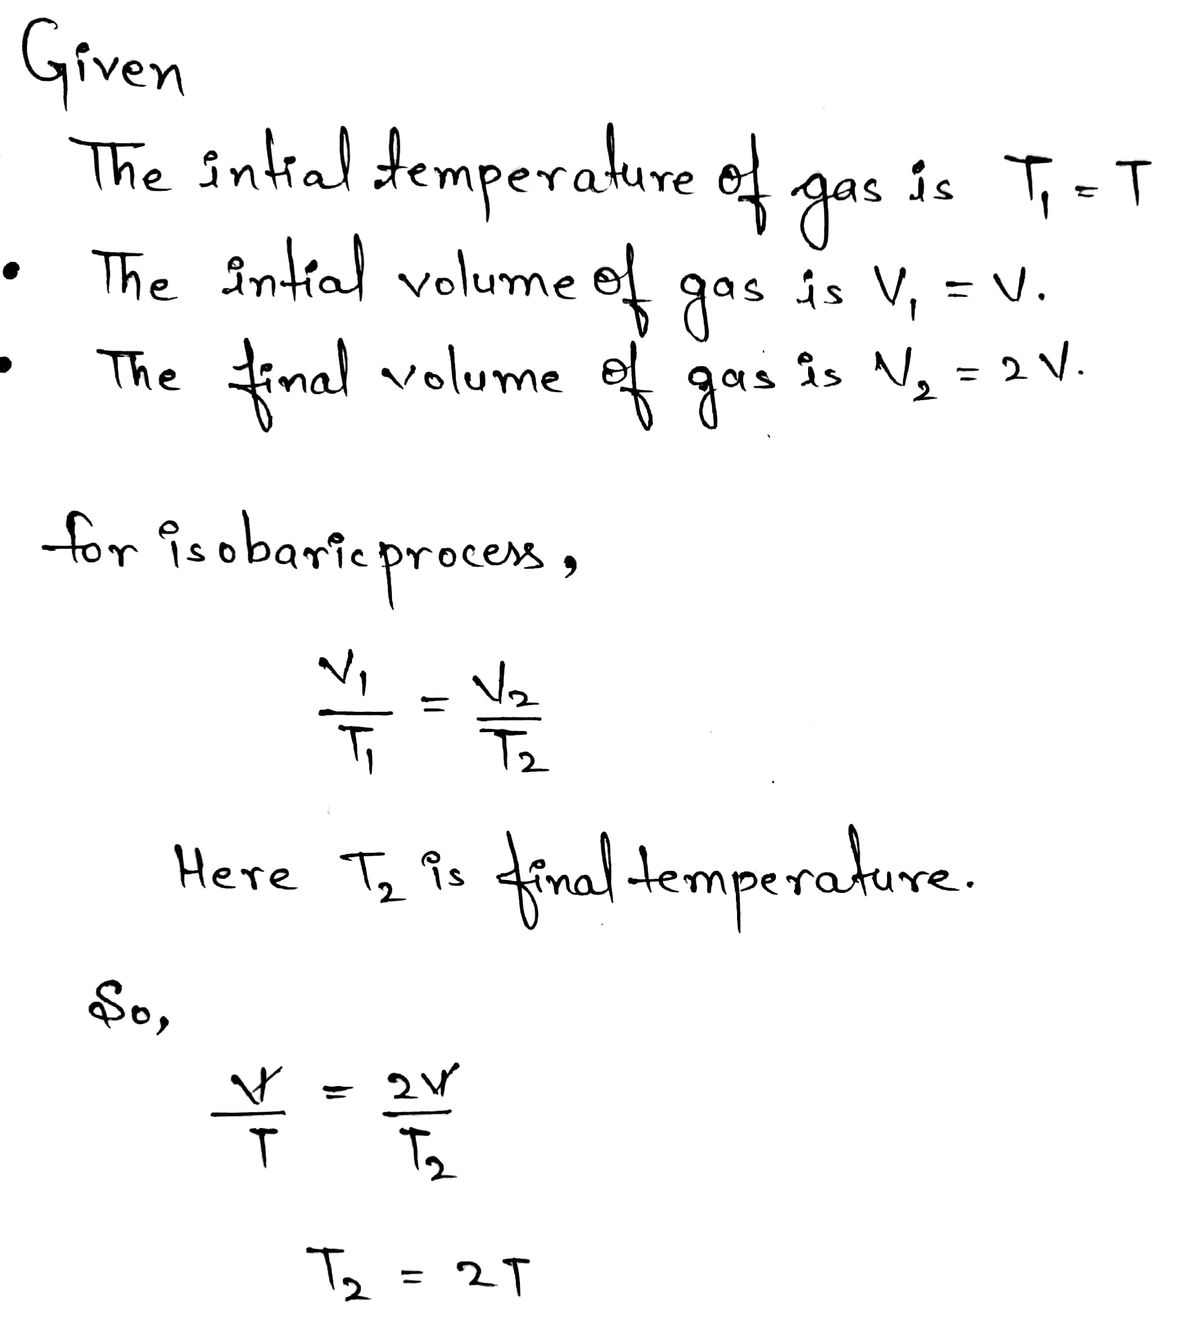 Given
The intial temperature of gas is T₁ = T
• The intial volume of gas is V₁ = V.
• The final volume of gas is V₂ = 2V.
for isobaric process,
V₁/T₁ = V₂/T₂
Here T₂ is final temperature.
So,
V/T = 2V/T₂
T₂ = 2T